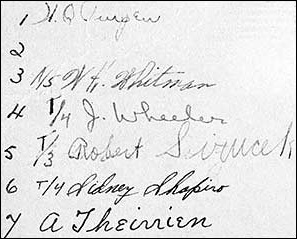 1 H. D. Jurgen
2
3 T/5 W. H. Whitman
4 T/4 J. Wheeler
5 T/3 Robert Sirucek
6 T/4 Sidney Shapiro
7 A Theirrien